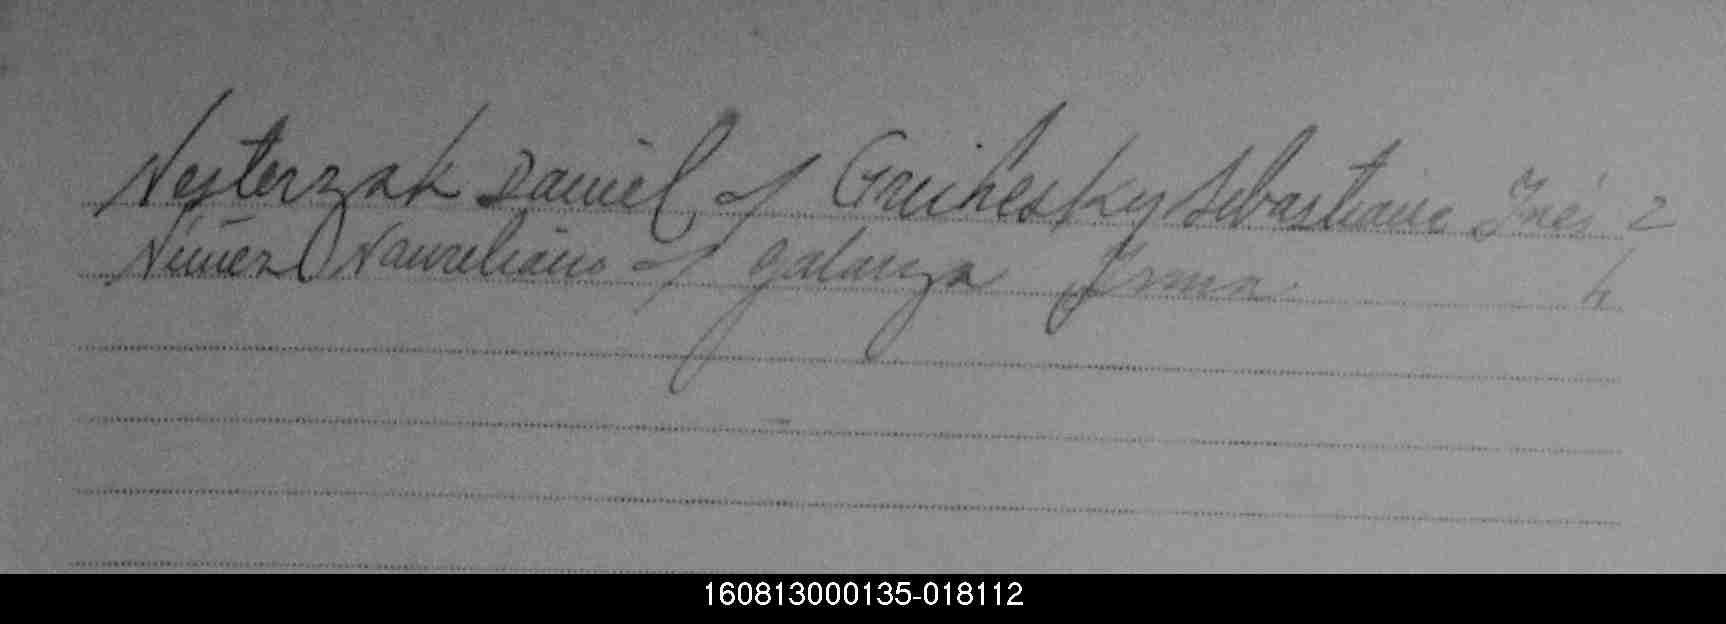 Nesterzak Daniel c/ Gruchesky Sebastiana Inés 2
Nuñez Naureliano c/ Galarza Irma 4
160813000135-018112